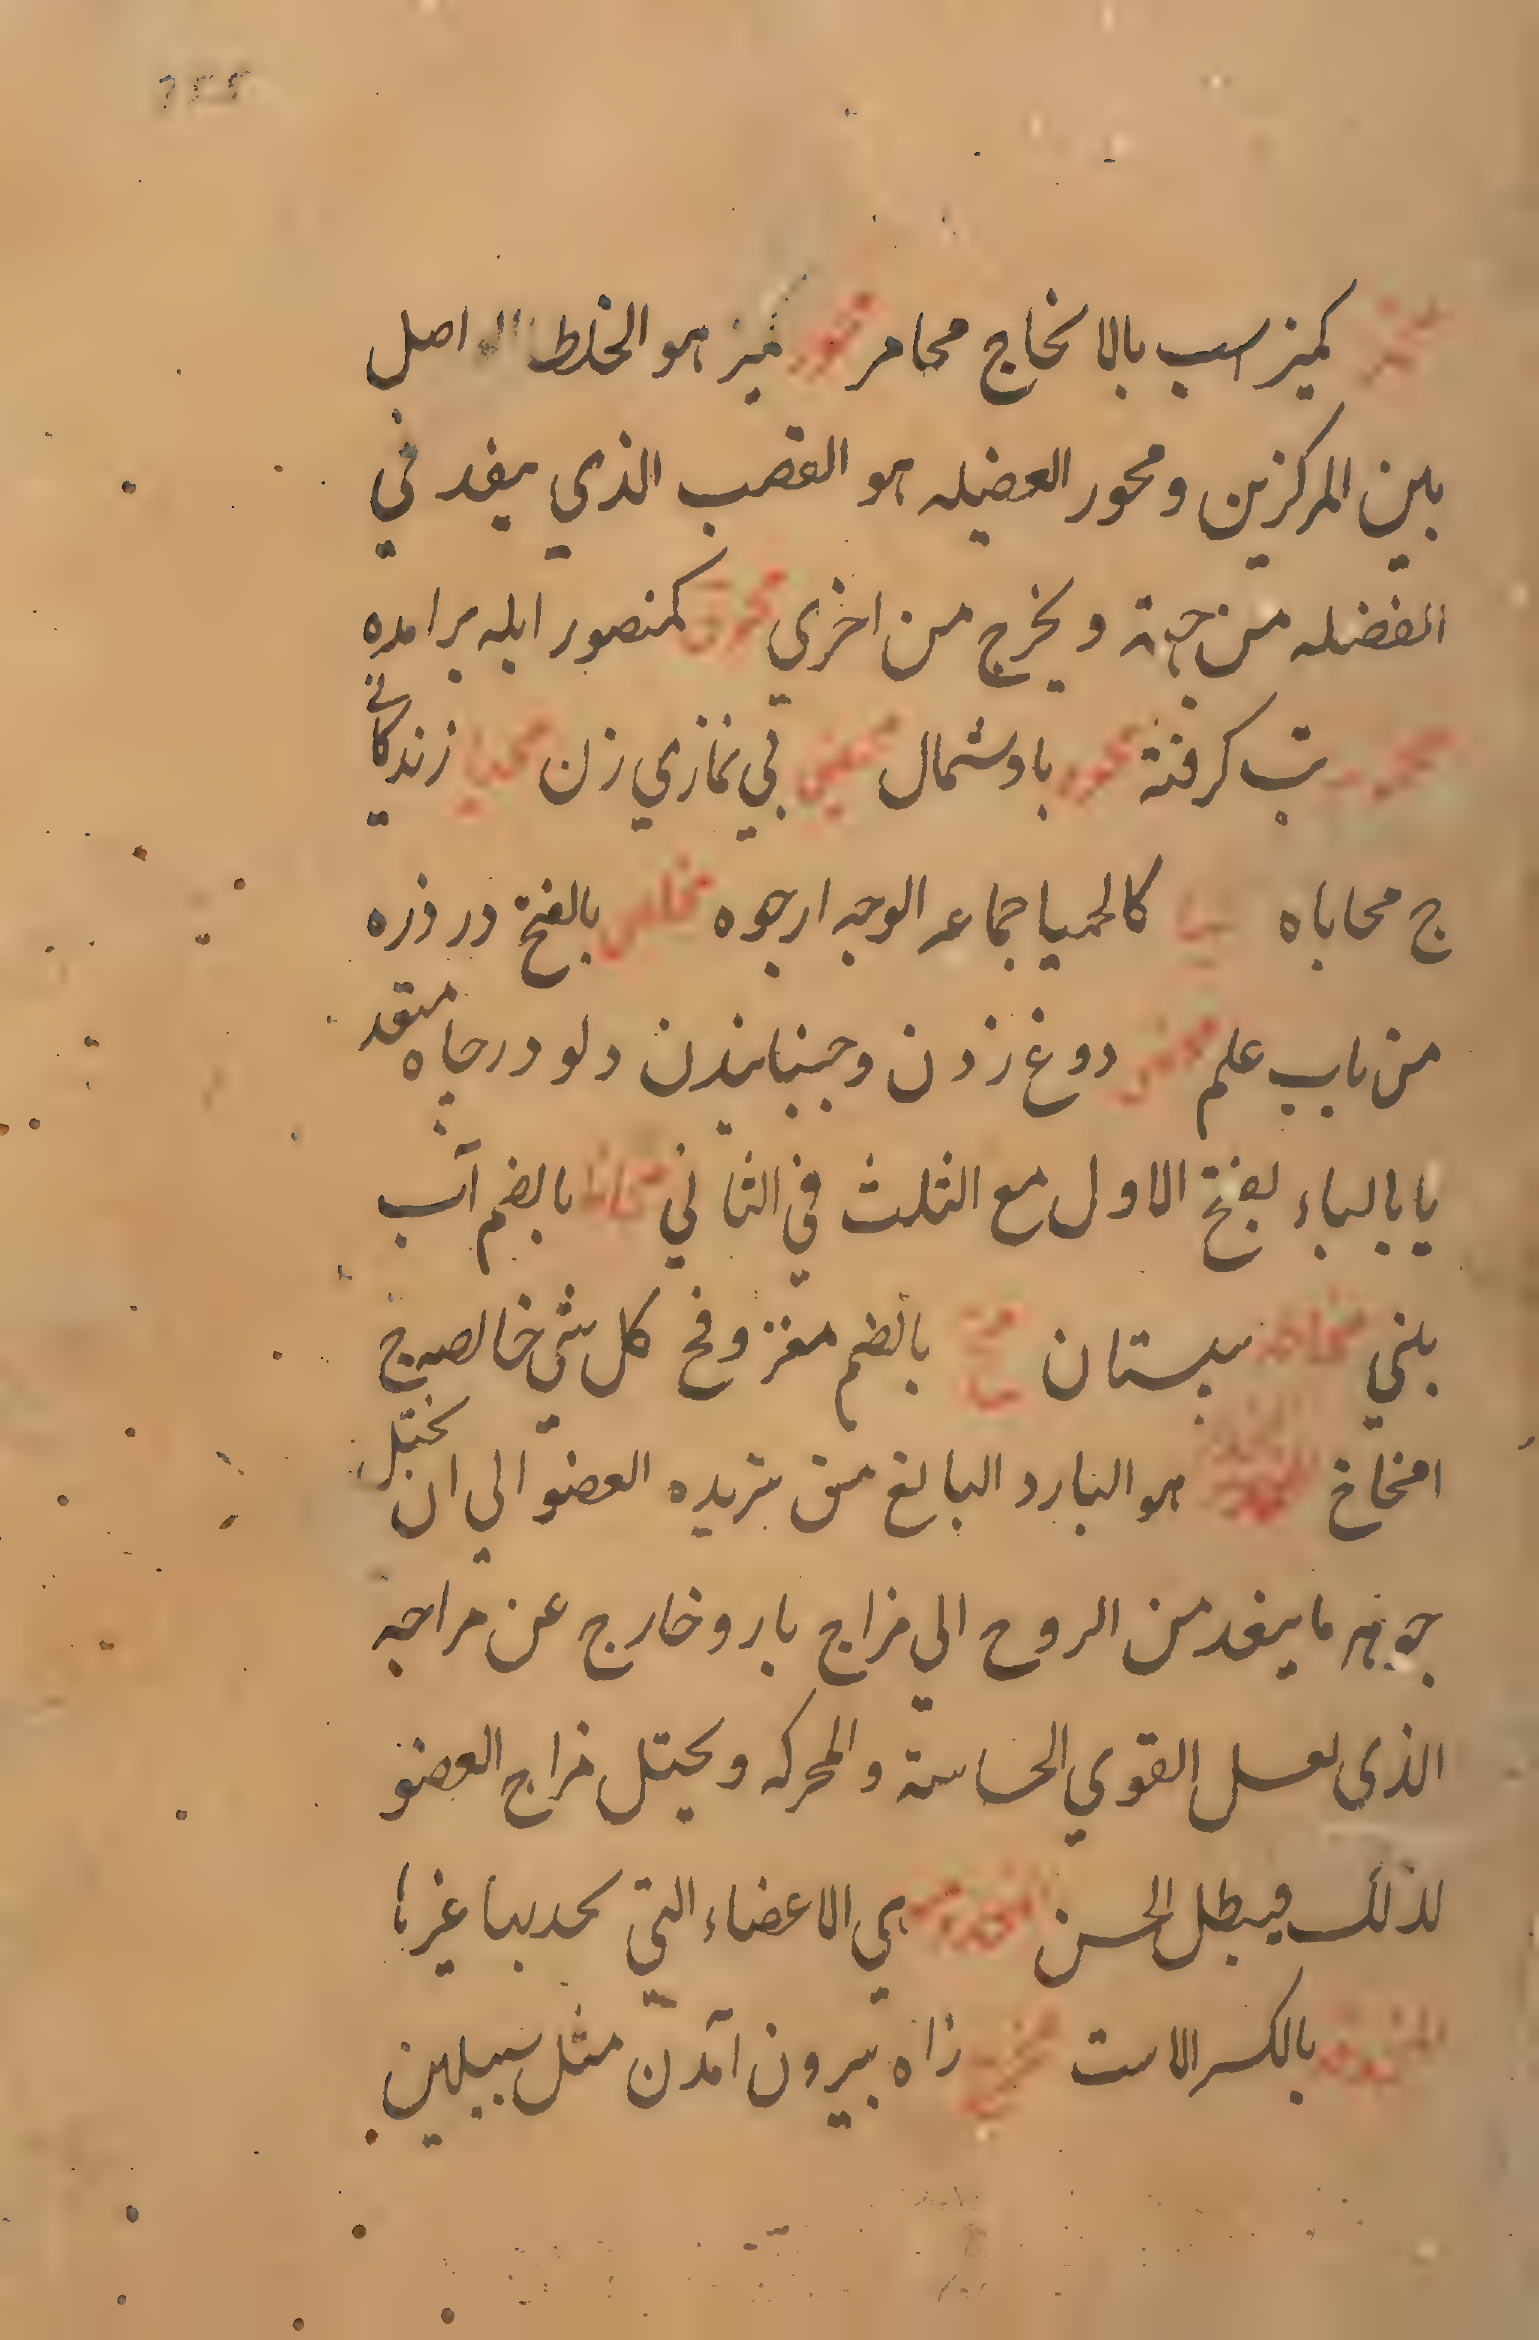 كمنبر اسب بالانخاج محامر محور كمنبر هو الخط الواصل
بين المركزين ومحور العضيله هو القصب الذي ينفد في
الفضله من جهة ويخرج من اخري كمنصور ابله برامده
تب كرفته باد شمال بي نمازي زن محيا زندكاني
ج محاباه كالمحيا جماعه الوجه ارجوه بالفتح درد زه
من باب علم مخض دوغ زدن وجنبانيدن دلو در چاه متقد
يا بالباء بفتح الاول مع الثلث في الثاني مخاط بالضم آب
بيني مخاطه سبستان مخ بالضم مغز ومخ كل شي خالصه ج
امخاخ المخدر هو البارد البالغ من تبريده العضو الي ان يختل
جوهر ما ينفد من الروح الي مزاج بارد خارج عن مزاجه
الذي لعسل القوي الحساسة والمحركه ويختل مزاج العضو
لذلك فيبطل الحسن المخدومه هي الاعضاء التي يحدمها غيرها
بالكسر الاست مخرج راه بيرون آمدن مثل سبيلين